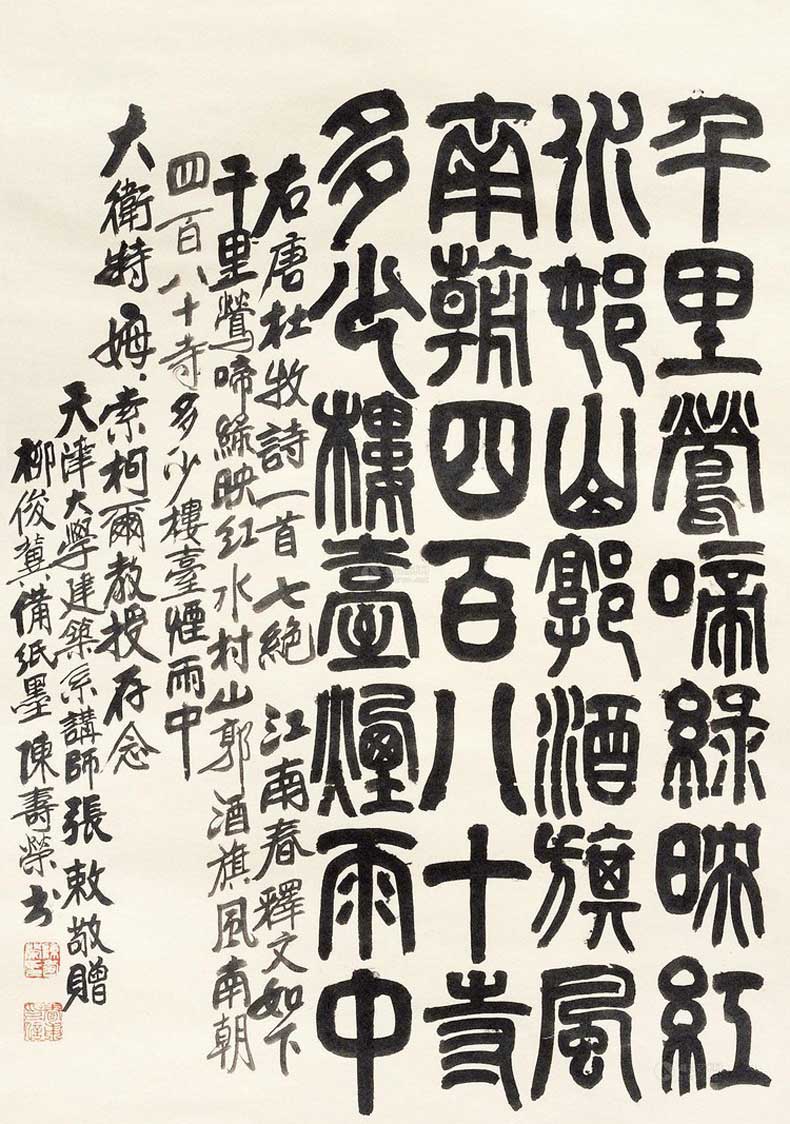 千里鶯啼綠映紅
水邨山郭酒旗風
南朝四百八十寺
多少樓臺煙雨中
右唐杜牧詩一首七絕 江南春釋文如下
千里鶯啼綠映紅水村山郭酒旗風南朝
四百八十寺多少樓臺煙雨中
大衛特姆索柯爾教授存念
天津大學建築系講師張敕敬贈
柳俊冀備紙墨陳壽榮書